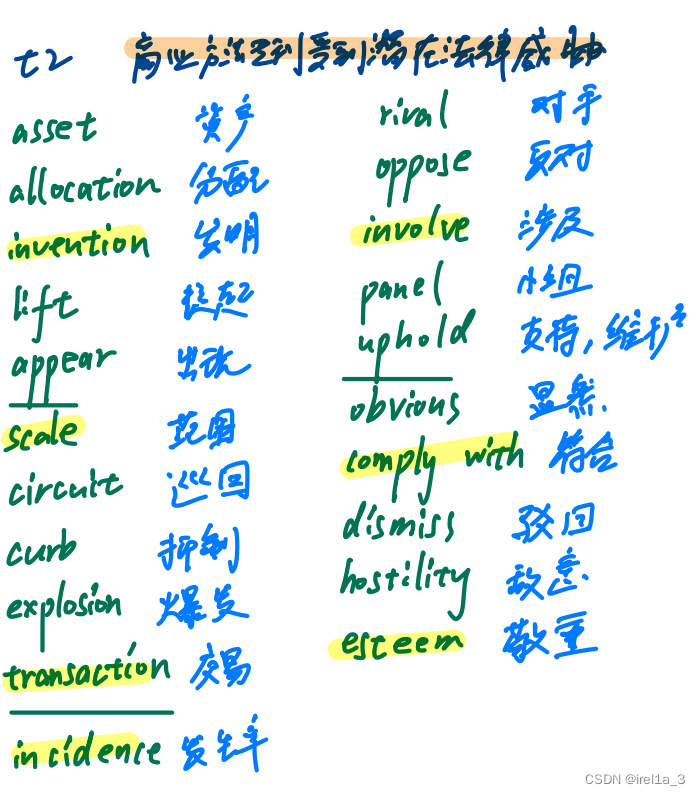 t2 商业方法专利受到潜在法律威胁
asset 资产
allocation 分配
invention 发明
lift 提起
appear 出现
scale 范围
circuit 巡回
curb 抑制
explosion 爆发
transaction 交易
incidence 发生率
rival 对手
oppose 反对
involve 涉及
panel 小组
uphold 支持，维护
obvious 显然
comply with 符合
dismiss 驳回
hostility 敌意
esteem 敬重
CSDN @irel1a_3